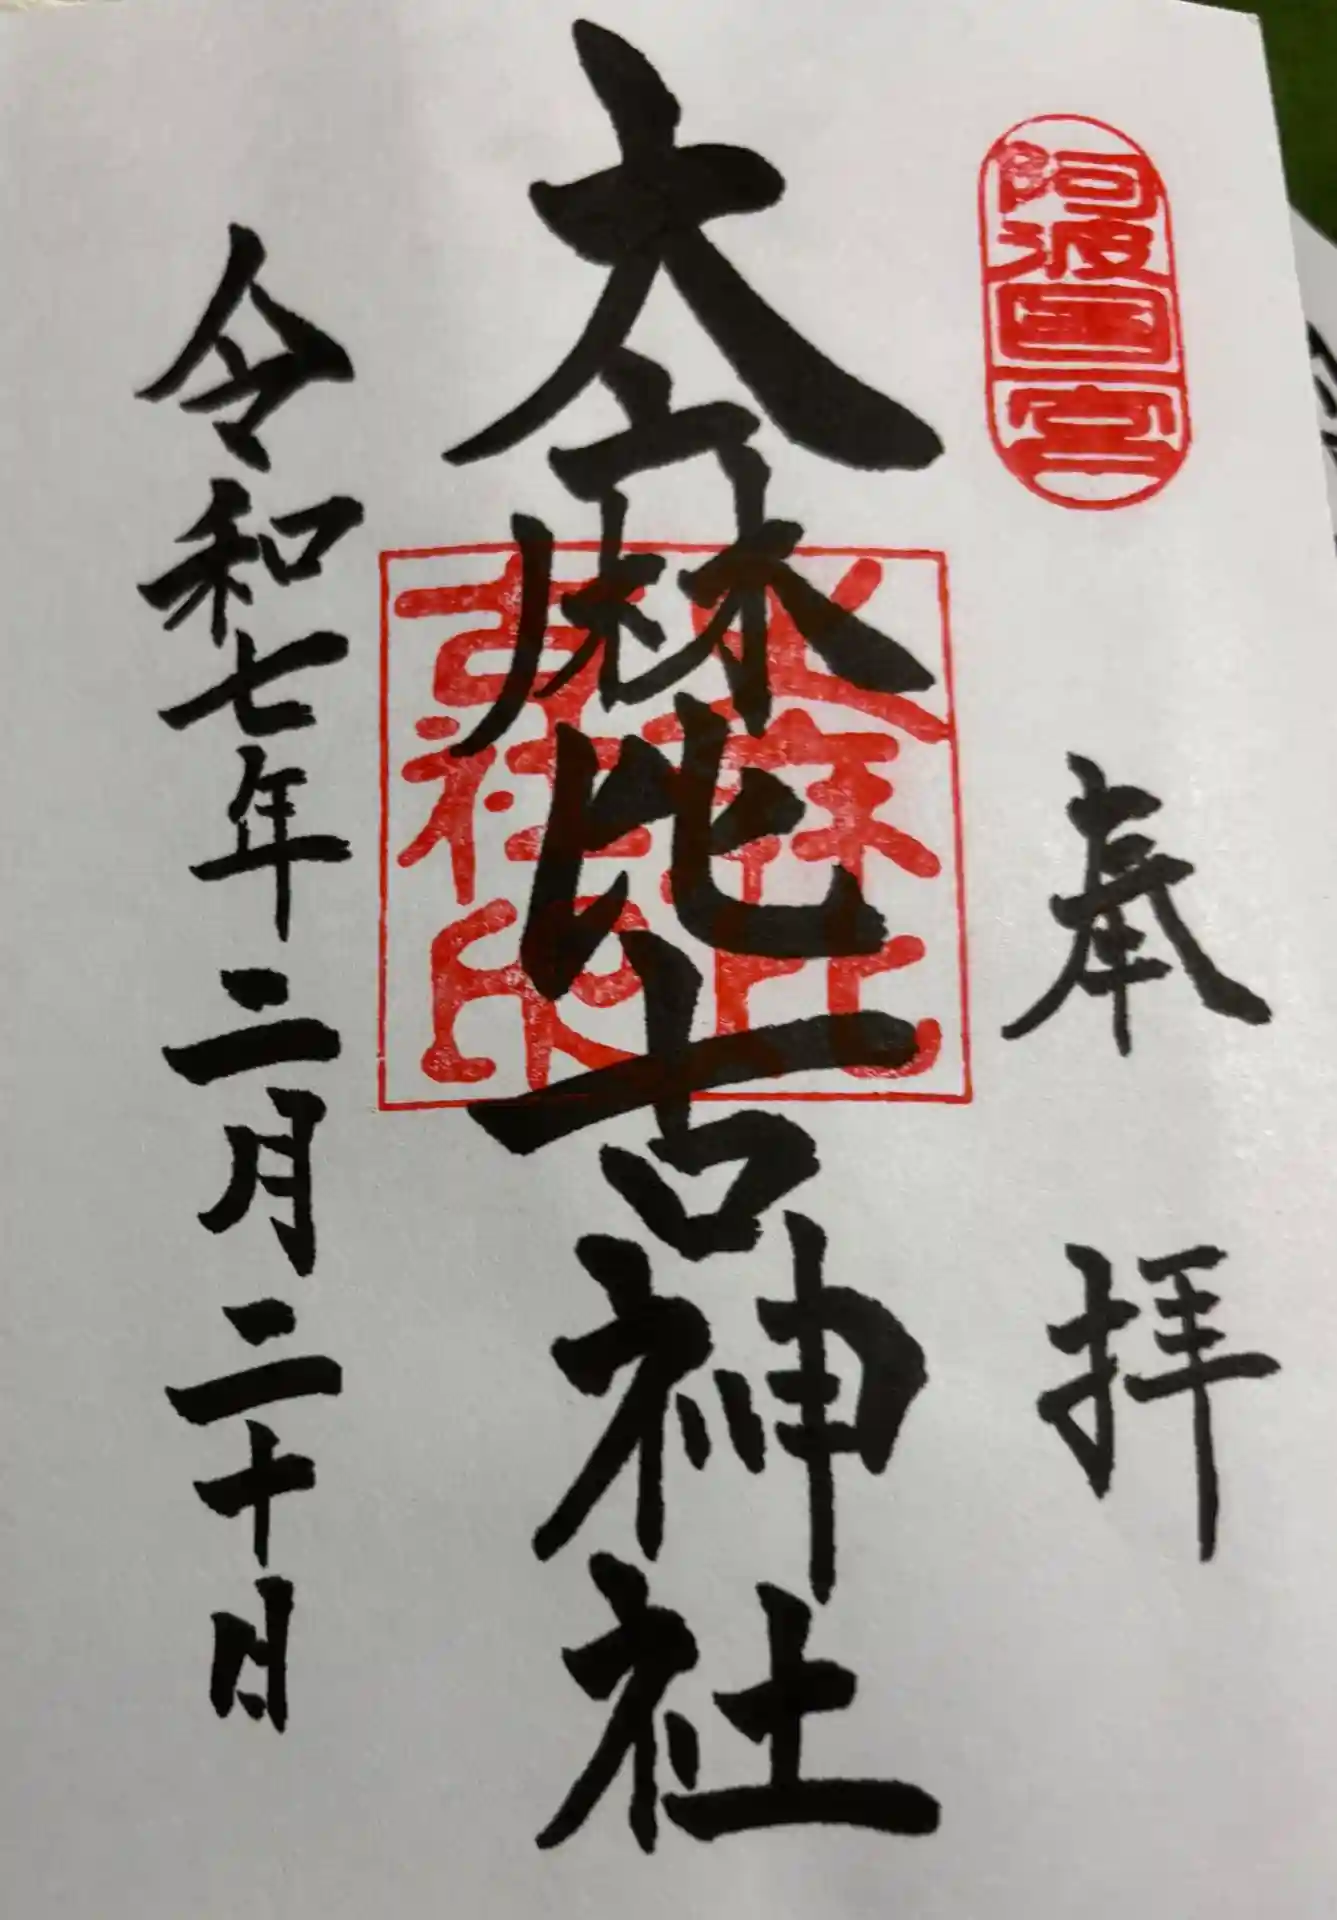 阿波國一宮
奉拝
大麻比古神社
大麻比
古社印
令和七年二月二十日